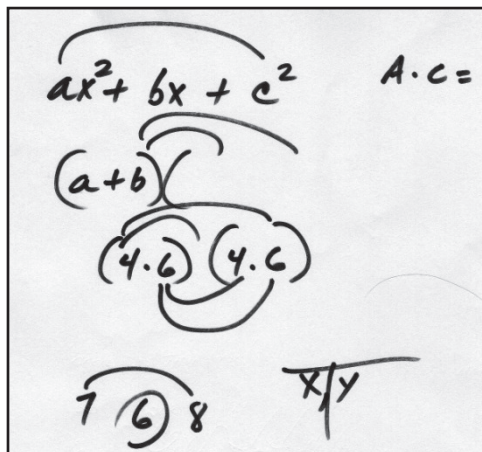 ax² + bx + c²
A·c=
(a+b)(
(4·6) (4·6)
7 6 8
x y